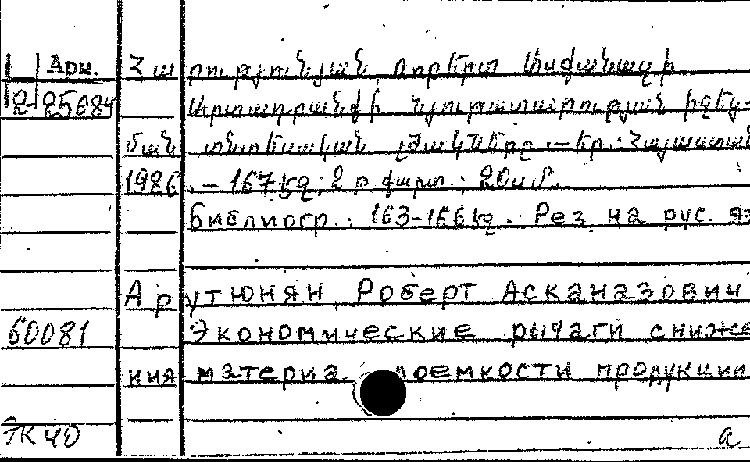 Арм. Հարությունյան Ռոբերտ Ասքանազի
2-25684 Արտադրանքի նյութատարության իջեց-
ման տնտեսական լծակները.—Եր.: Հայաստան
1986. — 167 էջ;  20 սմ.
Библиогр.: 163-166 էջ. Рез на рус. яз
Арутюнян Роберт Асканазович
60081 Экономические рычаги сниже
ния материалоемкости продукции
ЭК 40 а